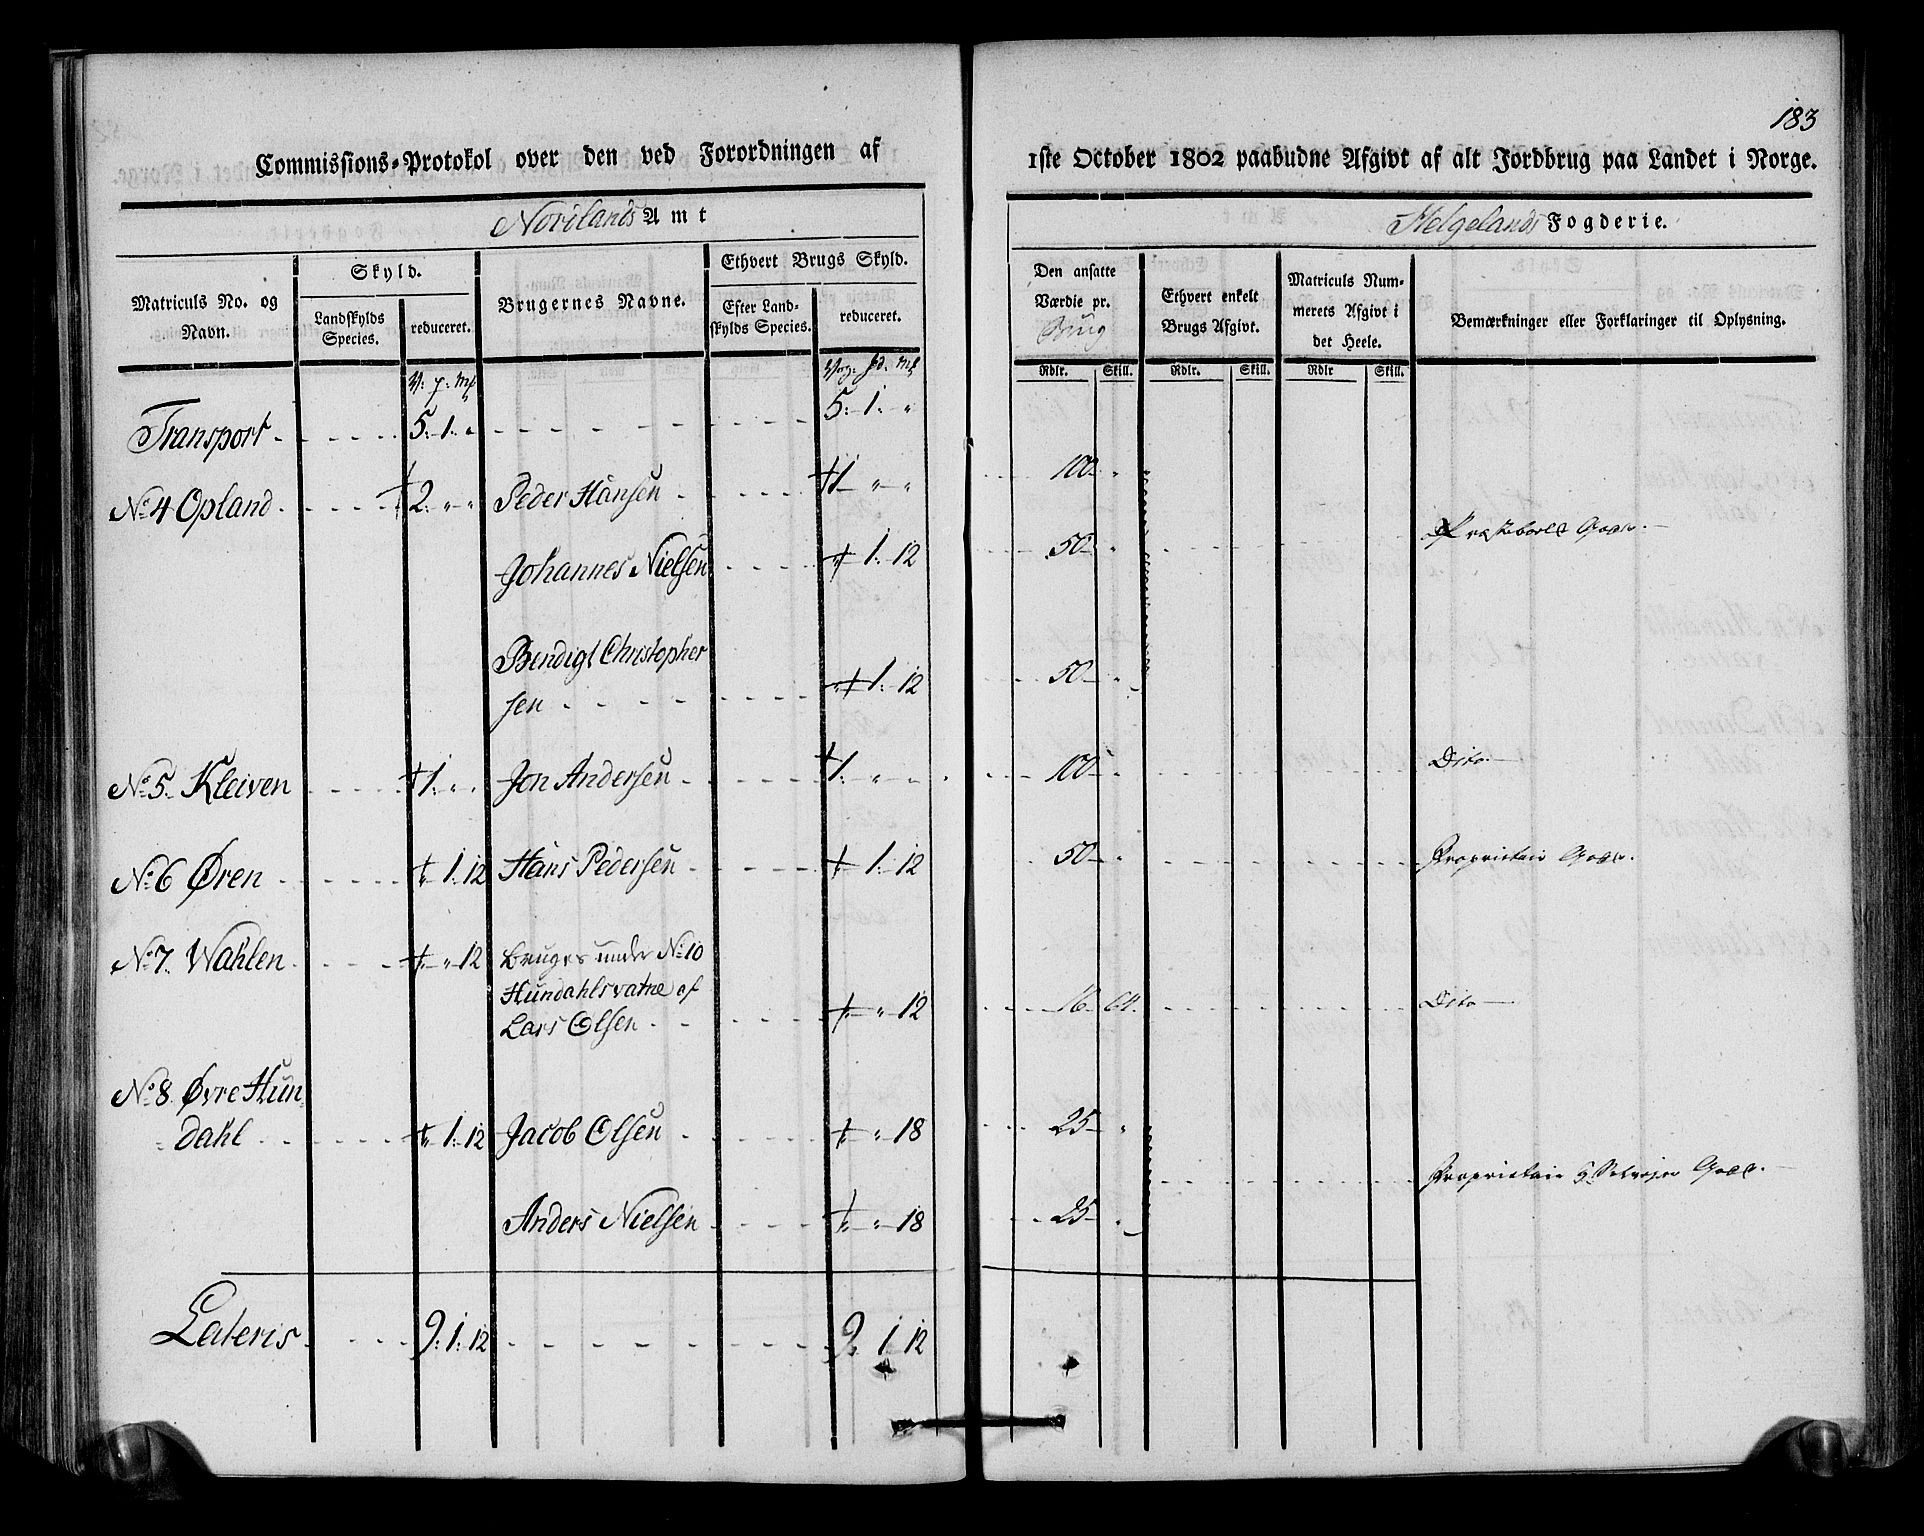 183
Commissions-Protokol over den ved Forordningen af
1ste October 1802 paabudne Afgivt af alt Jordbrug paa Landet i Norge.
Nordlands Amt
Helgelands Fogderie.
Matriculs No. og Navn.
Skyld.
Landskylds Species.
reduceret.
Brugernes Navne.
Ethvert Brugs Skyld.
Efter Landskylds Species.
reduceret.
Den ansatte Værdie pr. Brug
Ethvert enkelt Brugs Afgivt.
Matriculs Nummerets Afgivt i det Heele.
Bemærkninger eller Forklaringer til Oplysning.
Rdlr. Skill. Rdlr. Skill. Rdlr Skill.
Transport 5. 1. " 5. 1. "
No 4 Opland 2. " " Peder Hansen 1 " " 100 "
Johannes Nielsen 1. 12 50 " Præstebords Gods.
Bendigt Christopher
sen 1. 12 50 "
No 5. Kleiven 1. " " Jon Andersen 1. " " 100 " Dito
No 6 Øren 1. 12 Hans Pedersen 1. 12 50 " Proprietair Gods.
No 7. Wahlen " 12 bruges under No 10
Hundahlsvatne af
Lars Olsen " 12 16 64 Dito
No 8. Øvre Hun
dahl 1. 12 Jacob Olsen " 18 25 "
Proprietair Gods.
Anders Nielsen " 18 25 "
Lateris 9. 1. 12 9. 1 12